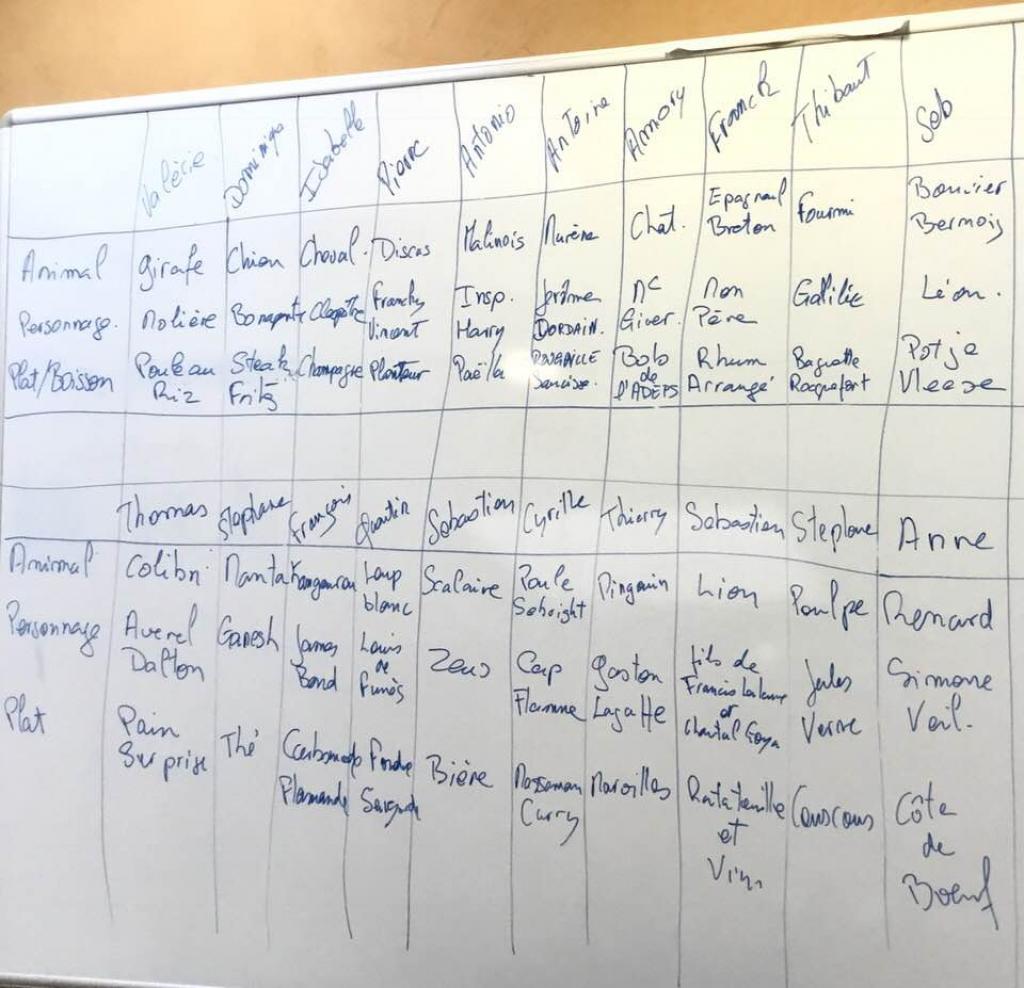 Valérie Dominiqu Isabelle Pierre Antonio Antoine Amory Franck Thibaut Seb
Animal Girafe Chien Cheval Discus Malinois Murène Chat. Epagneul Breton Fourmi Bouvier Bernois
Personnage. Molière Bonaparte Cléopâtre Francky Vincent Insp. Harry Jérôme DORDAIN. MC Giver. Mon Père Galilée Léon.
Plat/Boisson Poulean Riz Steak Frits Champagne Planteur Paëlla Saucisse. Bolo de l'ADEPS Rhum Arrangé Baguette Rocquefort Potje Vleese
Thomas Stéphane François Quentin Sébastien Cyrille Thierry Sébastien Stéphane Anne
Animal Colibri Manta Kangourou Loup blanc Scalaire Poule Sebright Pingouin Lion Poulpe Renard
Personnage Averel Dalton Ganesh James Bond Louis de Funès Zeus Cap Flamme Gaston Lagaffe fils de Francis Lalanne et Chantal Goya Jules Verne Simone Veil.
Plat Pain Surprise Thé Carbonade Flamande Fondue Bière Massaman Curry Maroilles Ratatouille et Vin Couscous Côte de Boeuf